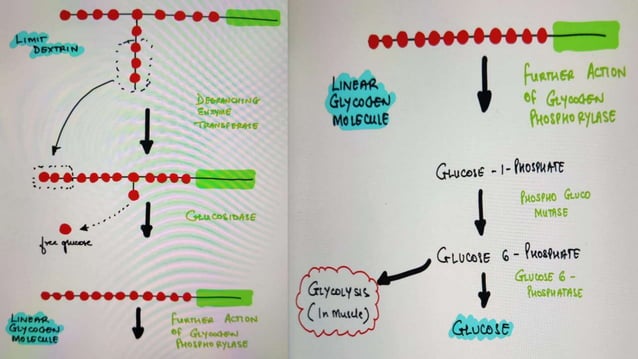 LIMIT
DEXTRIN
DEBRANCHING
ENZYME
TRANSFERASE
GLUCOSIDASE
free glucose
LINEAR
GLYCOGEN
MOLECULE
FURTHER ACTION
OF GLYCOGEN
PHOSPHORYLASE
LINEAR
GLYCOGEN
MOLECULE
FURTHER ACTION
OF GLYCOGEN
PHOSPHORYLASE
GLUCOSE - 1 - PHOSPHATE
PHOSPHO GLUCO
MUTASE
GLUCOSE 6 - PHOSPHATE
GLYCOLYSIS
(In Muscle)
GLUCOSE 6 -
PHOSPHATASE
GLUCOSE